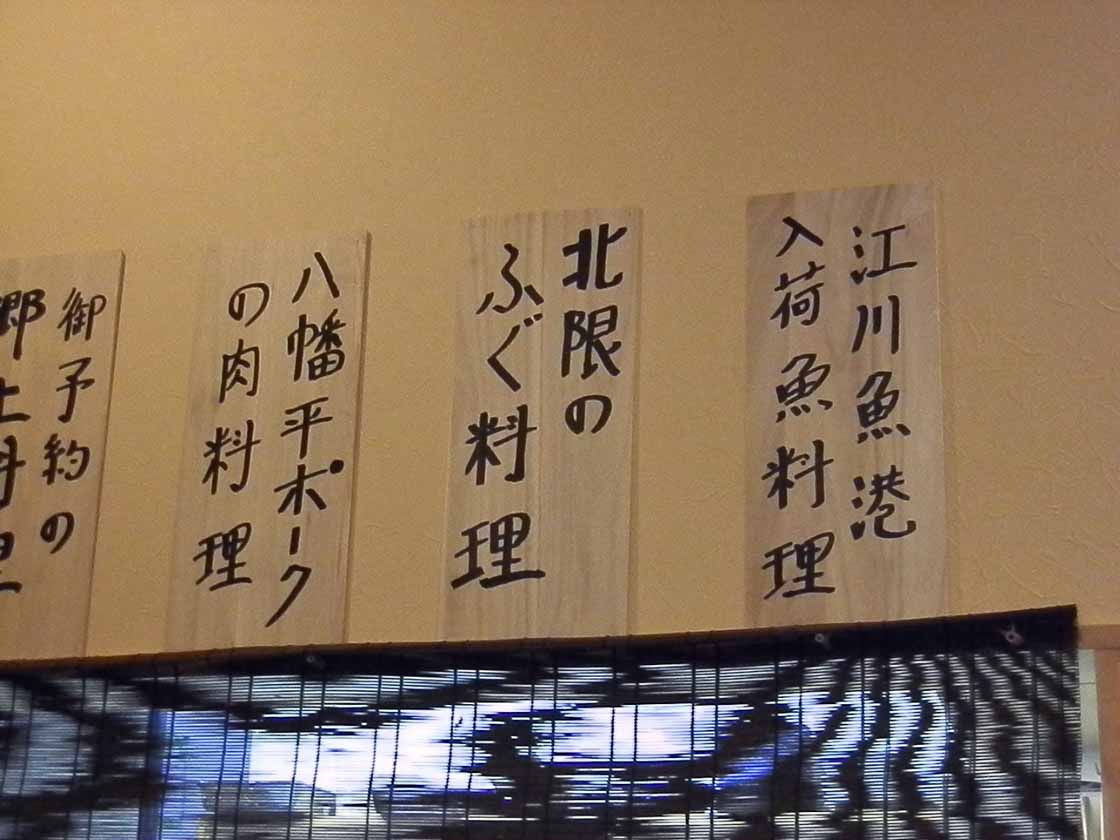 江川魚港
入荷魚料理
北限の
ふぐ料理
八幡平ポーク
の肉料理
御予約の
郷土料理